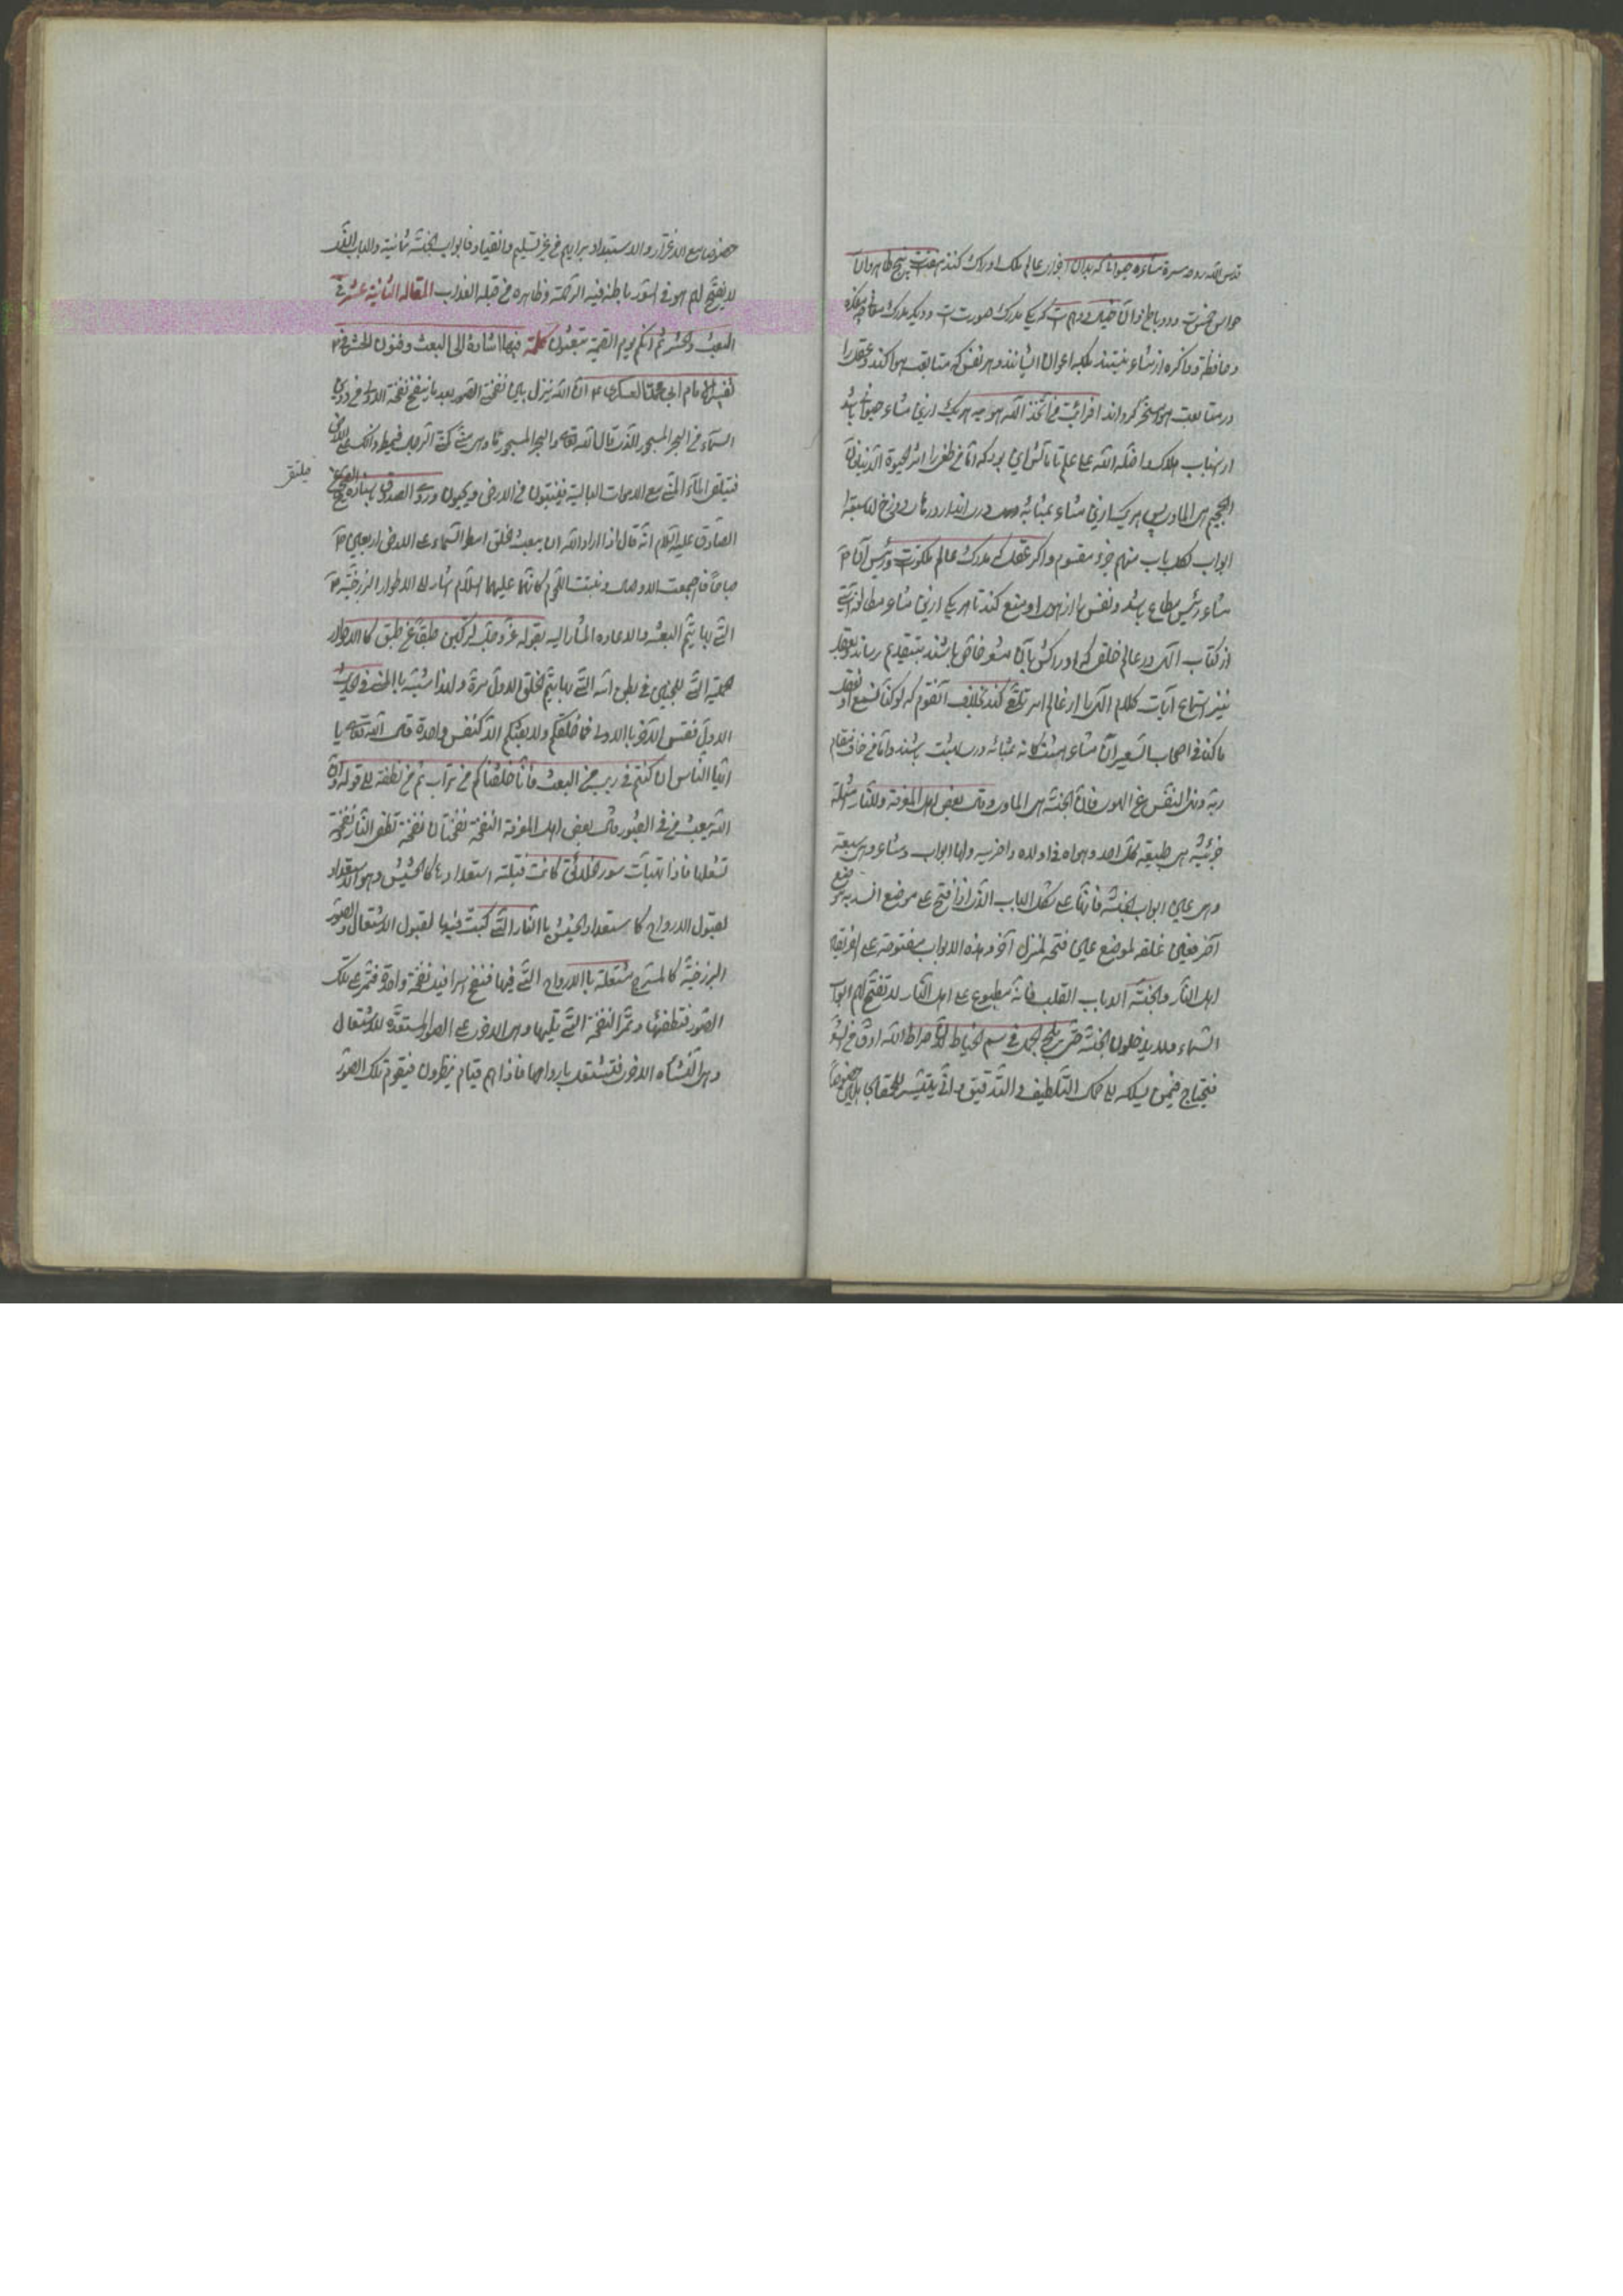 قدس الله روحه سره مشاعر حیوانی که بدان اجزاء عالم ملک ادراک کنند هفت پنج ظاهر و آن
حواس خمس است و دو باطن و آن خیال و وهم است که یکی مدرک صور است و دیگر مدرک معانی چه مفکره
و حافظه و ذاکره از مشاعر نیستند بلکه اعوان ایشانند و هر نفس که متابعت هوا کند و عقل را
در متابعت هوا مسخر گرداند افرایت من اتخذ الهه هویه هر یک ازین مشاعر حیوانی باشد
و اضله الله علی علم تا مآلش این بود که اما من طغی و اثر الحیوة الدنیا فان
الجحیم هی الماوی پس هر یک ازین مشاعر بمثابه دری اند از درهای دوزخ لها سبعة
ابواب لکل باب منهم جزء مقسوم و اگر عقل که مدرک عالم ملکوت و رئیس آن
مشاعر رئیس مطاع باشد و نفس را از هوا منع کند تا هر یک ازین مشاعر مطالعه آیتی
از کتاب الهی در عالم خلق که ادراکش بآن مشعر خاص باشد بتقدیم رساند و بعقل
نیز استماع آیات کلام الهی را از عالم امر تلقی کند بخلاف آنقوم که لو کنا نسمع او نعقل
ما کنا فی اصحاب السعیر این مشاعر هشت گانه بمثابه درهای بهشت باشند و اما من خاف مقام
ربه و نهی النفس عن الهوی فان الجنة هی الماوی و قال بعض اهل المعرفة و للنار
جزئیة هی طبیعة کل احد و هواه فی اولاه و اخریه و لها ابواب و مشاعر و هی سبعة
و هی عین ابواب الجنة فانها علی شکل الباب الذی اذا فتح علی موضع انسد به موضع
آخر فعین غلقه لموضع عین فتحه لمنزل آخر و هذه الابواب مفتوحة علی الفریقین
اهل النار و الجنة الا باب القلب فانه مطبوع علی اهل النار لا تفتح لهم ابواب
السماء و لا یدخلون الجنة حتی یلج الجمل فی سم الخیاط لان صراط الله ادق من الشعر
فیحتاج من یسلکه الی کمال التلطیف و التدقیق و انی یتیسر للحمقاء الجاهلین خصوصا
خصوصا مع الاغترار و الاستبداد برایهم من غیر تسلیم و انقیاد فابواب الجنة ثمانیة و الباب الذی
لا یفتح لهم هو فی السور باطنه فیه الرحمة و ظاهره من قبله العذاب المقالة الثانیة عشر فی
البعث و الحشر ثم انکم یوم القیمة تبعثون کلمة فیها اشارة الی البعث و فنون الحشر فی
تفسیر الامام ابی محمد العسکری ع ان الله ینزل بین نفختی الصور بعد ما ینفخ نفخة الاولی من دون
السماء من البحر المسجور الذی قال الله تعالی و البحر المسجور و هی منی کمنی الرجل فیمطر ذلک علی الارض
فیلتقی الماء المنی مع الاموات البالیة فینبتون من الارض و یحیون و روی الصدوق باسناده الصحیح عن
فیلتقی
الصادق علیه السلام انه قال اذا اراد الله ان یبعث الخلق امطر السماء علی الارض اربعین
صباحا فاجتمعت الاوصال و نبتت اللحوم کانهما علیهما السلام اشارا الی الاطوار البرزخیة
التی بها یتم البعث و الاعادة المشار الیه بقوله عز و جل لترکبن طبقا عن طبق کالاطوار
الرحمیة التی للجنین فی بطن امه التی بها یتم الخلق الاول مرة و لهذا شبه بالمنی فی الحدیث
الاول فقس الاخری بالاولی فما خلقکم و لا بعثکم الا کنفس واحدة قال الله تعالی یا
ایها الناس ان کنتم فی ریب من البعث فانا خلقناکم من تراب ثم من نطفة الی قوله و ان
الله یبعث من فی القبور قال بعض اهل المعرفة النفخة نفختان نفخة تطفی النار و نفخة
تشعلها فاذا تهیأت هذه الصور کانت فتیلة استعدادها کالحشیش و هو الاستعداد
لقبول الارواح کاستعداد الحشیش بالنار التی کمنت فیها لقبول الاشتعال و الصور
البرزخیة کالسرج مشتعلة بالارواح التی فیها فینفخ اسرافیل نفخة واحدة فتمر علی تلک
الصور فتطفئها و تمر النفخة التی تلیها و هی الاخری علی الصور المستعدة للاشتعال
و هی النشأة الاخری فتشتعل بارواحها فاذا هم قیام ینظرون فیقوم تلک الصور